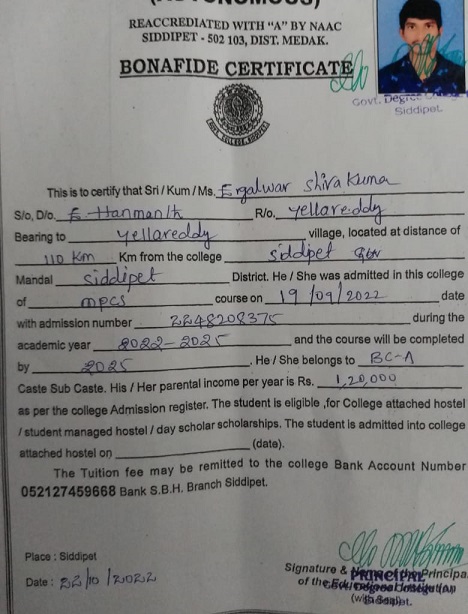 (AUTONOMOUS)
REACCREDIATED WITH "A" BY NAAC
SIDDIPET - 502 103, DIST. MEDAK.
BONAFIDE CERTIFICATE
Govt. Degree College
Siddipet.
GOVT. COLLEGE, SIDDIPET
This is to certify that Sri / Kum / Ms. Ergalwar Shiva Kumar
S/o, D/o. E. Hanmanth R/o. yellareddy
Bearing to yellareddy village, located at distance of
110 Km Km from the college siddipet
Mandal siddipet District. He / She was admitted in this college
of mpcs course on 19/09/2022 date
with admission number 2248208375 during the
academic year 2022-2025 and the course will be completed
by 2025. He / She belongs to BC-A
Caste Sub Caste. His / Her parental income per year is Rs. 1,20,000
as per the college Admission register. The student is eligible ,for College attached hostel
/ student managed hostel / day scholar scholarships. The student is admitted into college
attached hostel on (date).
The Tuition fee may be remitted to the college Bank Account Number
052127459668 Bank S.B.H. Branch Siddipet.
Place : Siddipet
Date : 22/10/2022
Signature & Name of the Principal
of the Educational Institution
(with Seal)
PRINCIPAL
Govt. Degree College (A)
Siddipet.